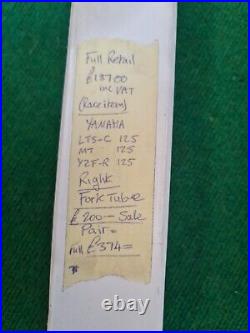 Full Retail
£187.00
inc VAT
(Race item)
YAMAHA
LTS-C 125
MT 125
YZF-R 125
Right
Fork Tube
£200 - Sale
Pair =
Full £374=